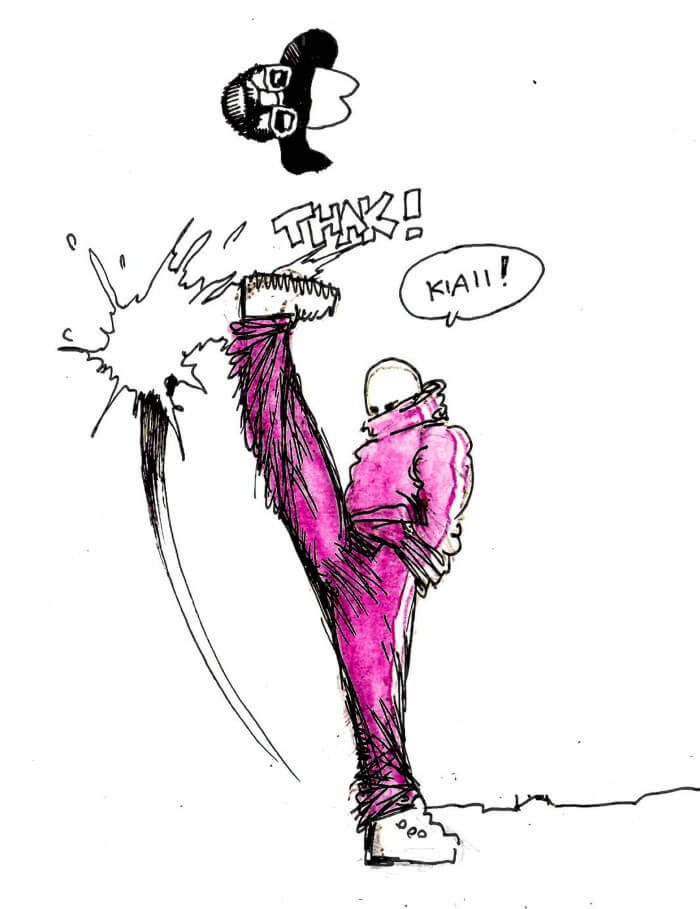 THAK!
KIAII!